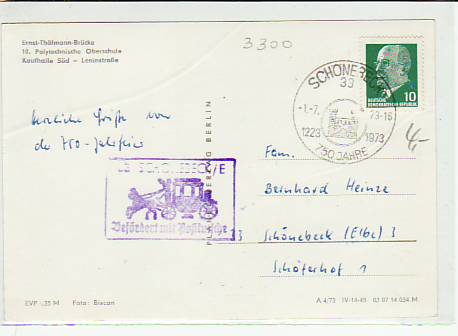 Ernst-Thälmann-Brücke
10. Polytechnische Oberschule
Kaufhalle Süd – Leninstraße
3300
SCHÖNEBECK
33
-1.-7. 73-16
1223 1973
750 JAHRE
10
DEUTSCHE
DEMOKRATISCHE REPUBLIK
4,-
herzliche Grüße von
der 750-Jahrfeier
BERLIN
SCHÖNEBECK/E
Befördert mit Postkutsche
Fam.
Bernhard Heinze
33
Schönebeck (Elbe)
Schäferhof 1
EVP -.35 M Foto: Biscan
A 4/73 IV-14-45 03 07 14 034 M